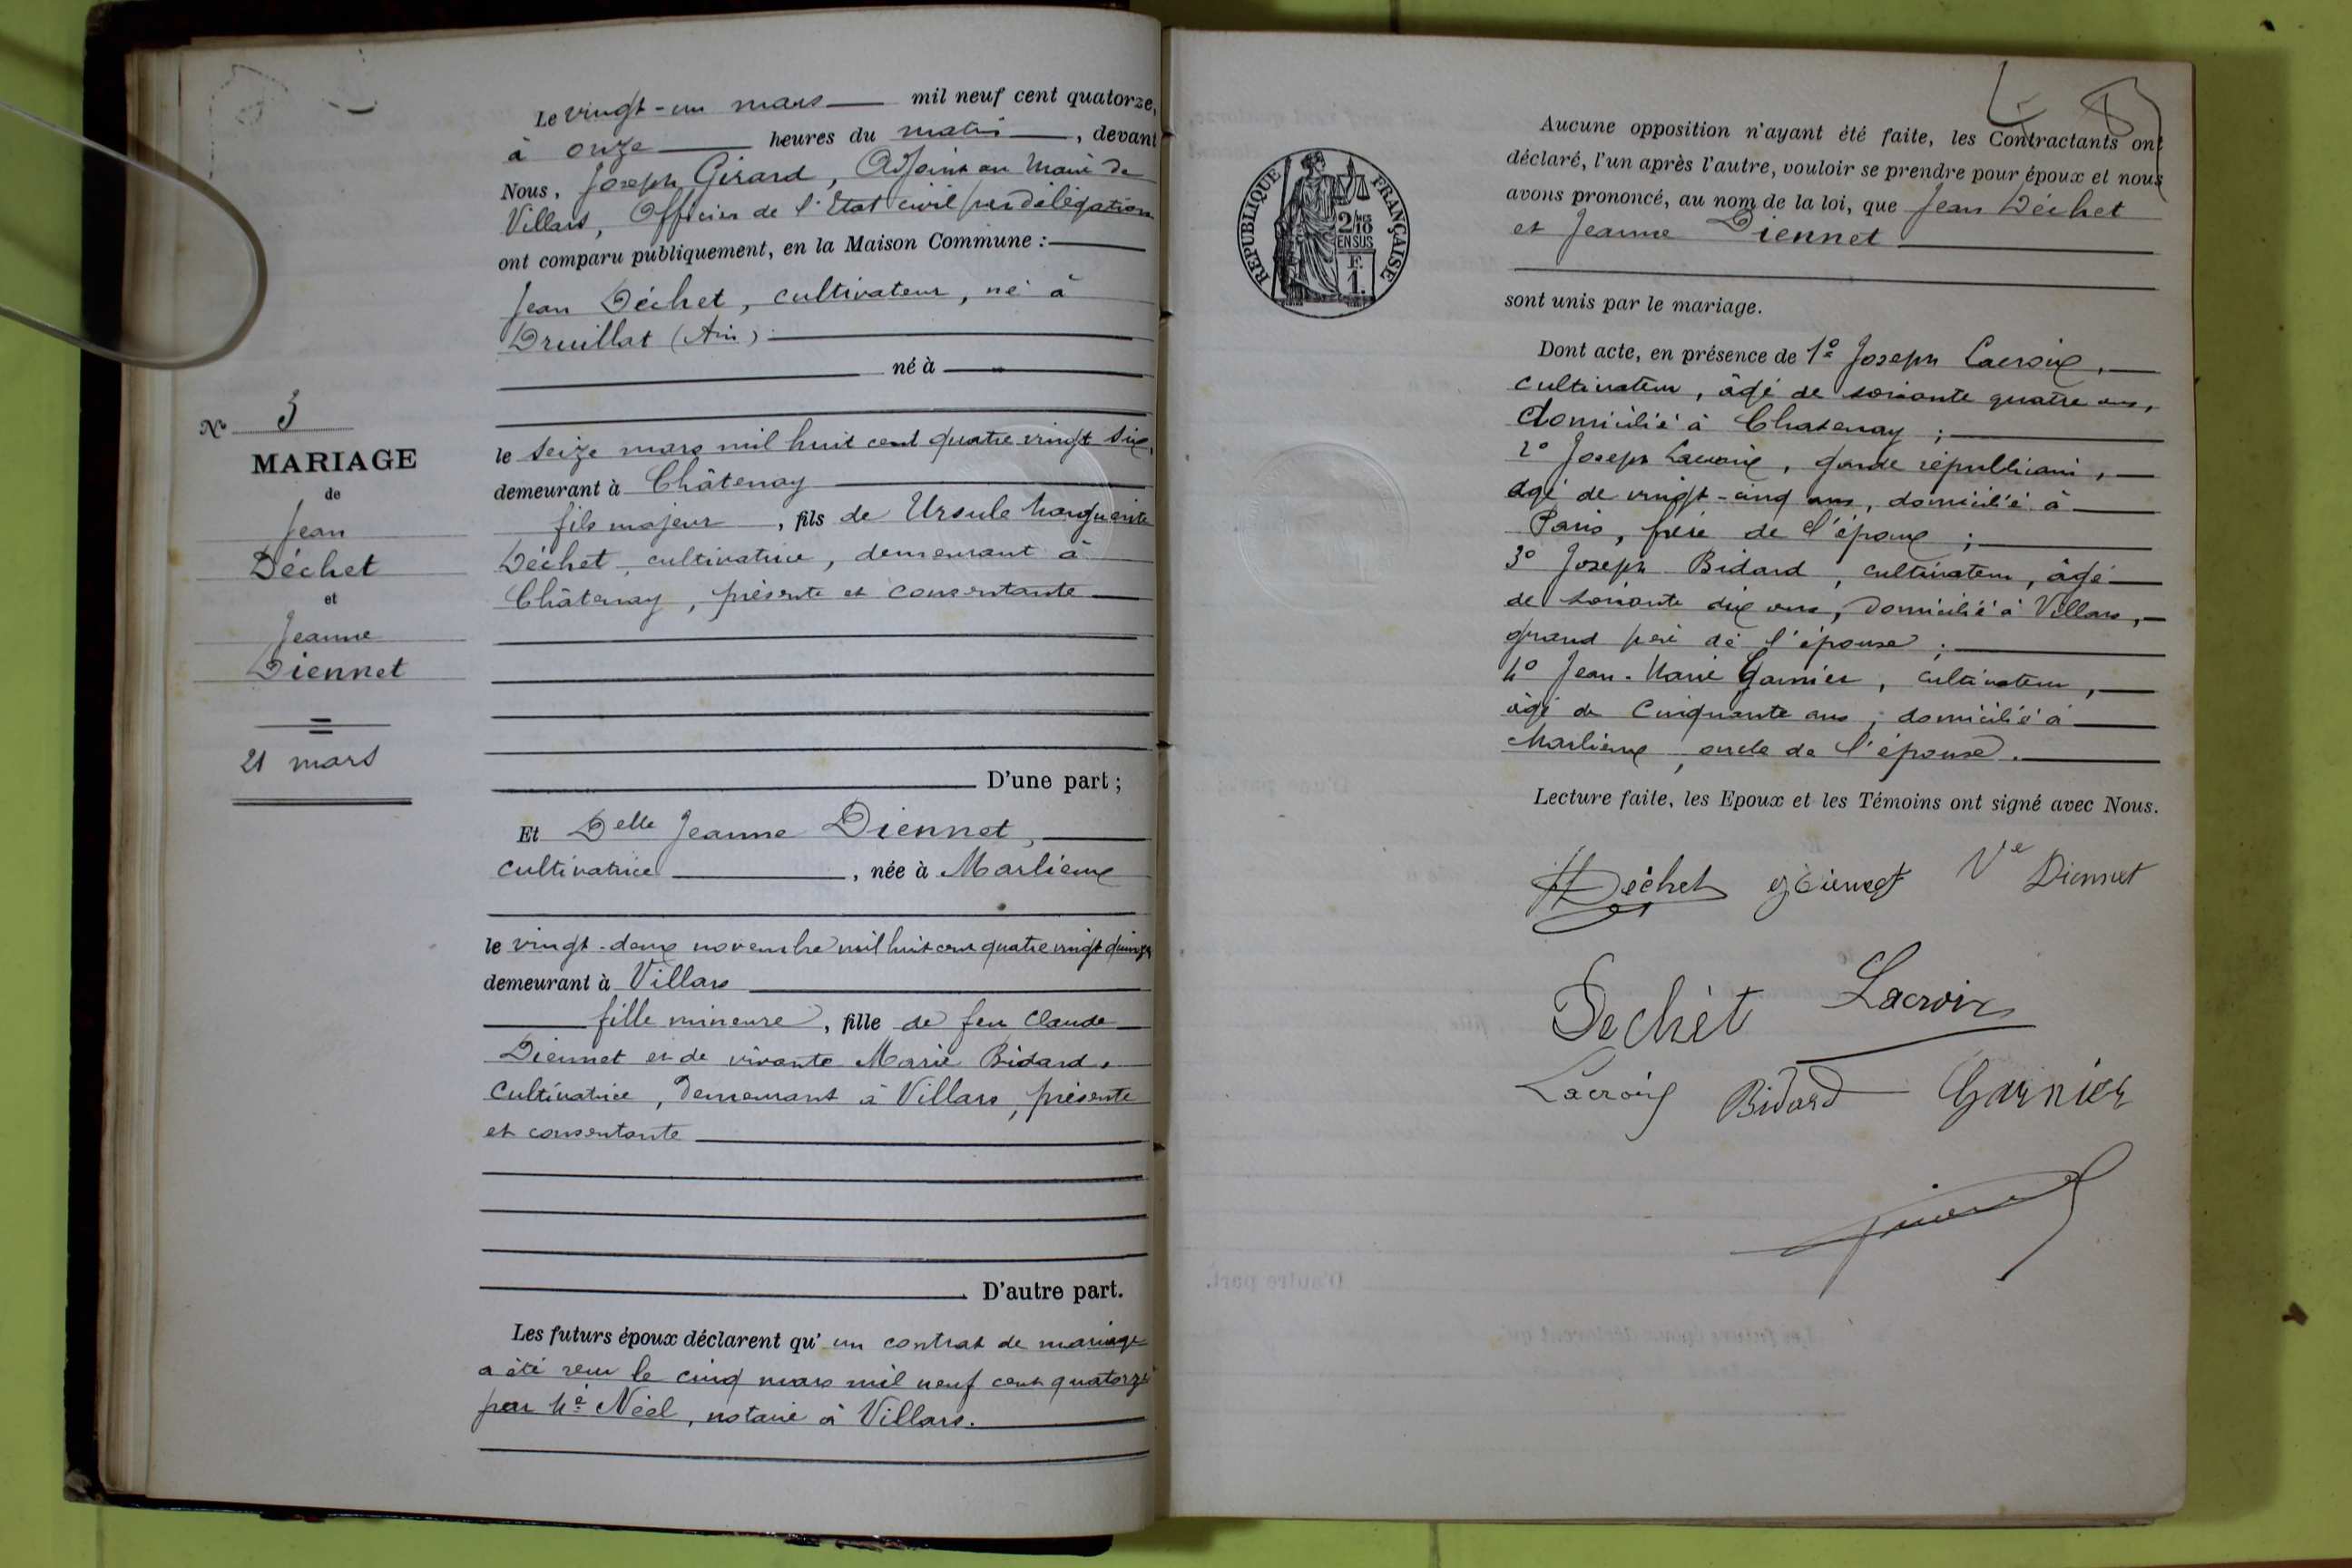 Le vingt-un mars mil neuf cent quatorze,
à onze heures du matin, devant
Nous, Joseph Girard, Adjoint au Maire de
Villars, Officier de l'Etat civil par délégation
ont comparu publiquement, en la Maison Commune :
Jean Déchet, cultivateur, né à
Druillat (Ain)
né à
le seize mars mil huit cent quatre vingt six,
demeurant à Châtenay
fils majeur, fils de Ursule Marguerite
Déchet, cultivatrice, demeurant à
Châtenay, présente et consentante
D'une part ;
Et Delle Jeanne Diennet,
cultivatrice, née à Marlieux
le vingt-deux novembre mil huit cent quatre vingt quinze
demeurant à Villars
fille mineure, fille de feu Claude
Diennet et de vivante Marie Bidard,
cultivatrice, demeurant à Villars, présente
et consentante
D'autre part.
Les futurs époux déclarent qu'un contrat de mariage
a été reçu le cinq mars mil neuf cent quatorze
par Me Néel, notaire à Villars.
No 3
MARIAGE
de
Jean
Déchet
et
Jeanne
Diennet
21 mars
RÉPUBLIQUE FRANÇAISE
2/10
EN SUS
F.
1.
Aucune opposition n'ayant été faite, les Contractants ont
déclaré, l'un après l'autre, vouloir se prendre pour époux et nous
avons prononcé, au nom de la loi, que Jean Déchet
et Jeanne Diennet
sont unis par le mariage.
Dont acte, en présence de 1º Joseph Lacroix,
cultivateur, âgé de soixante quatre ans,
domicilié à Chatenay ;
2º Joseph Lacroix, garde républicain,
âgé de vingt-cinq ans, domicilié à
Paris, frère de l'époux ;
3º Joseph Bidard, cultivateur, âgé
de soixante dix ans, domicilié à Villars,
grand père de l'épouse ;
4º Jean-Marie Garnier, cultivateur,
âgé de cinquante ans, domicilié à
Marlieux, oncle de l'épouse.
Lecture faite, les Epoux et les Témoins ont signé avec Nous.
Déchet J Diennet Ve Diennet
Dechét Lacroix
Lacroix Bidard Garnier
Girard